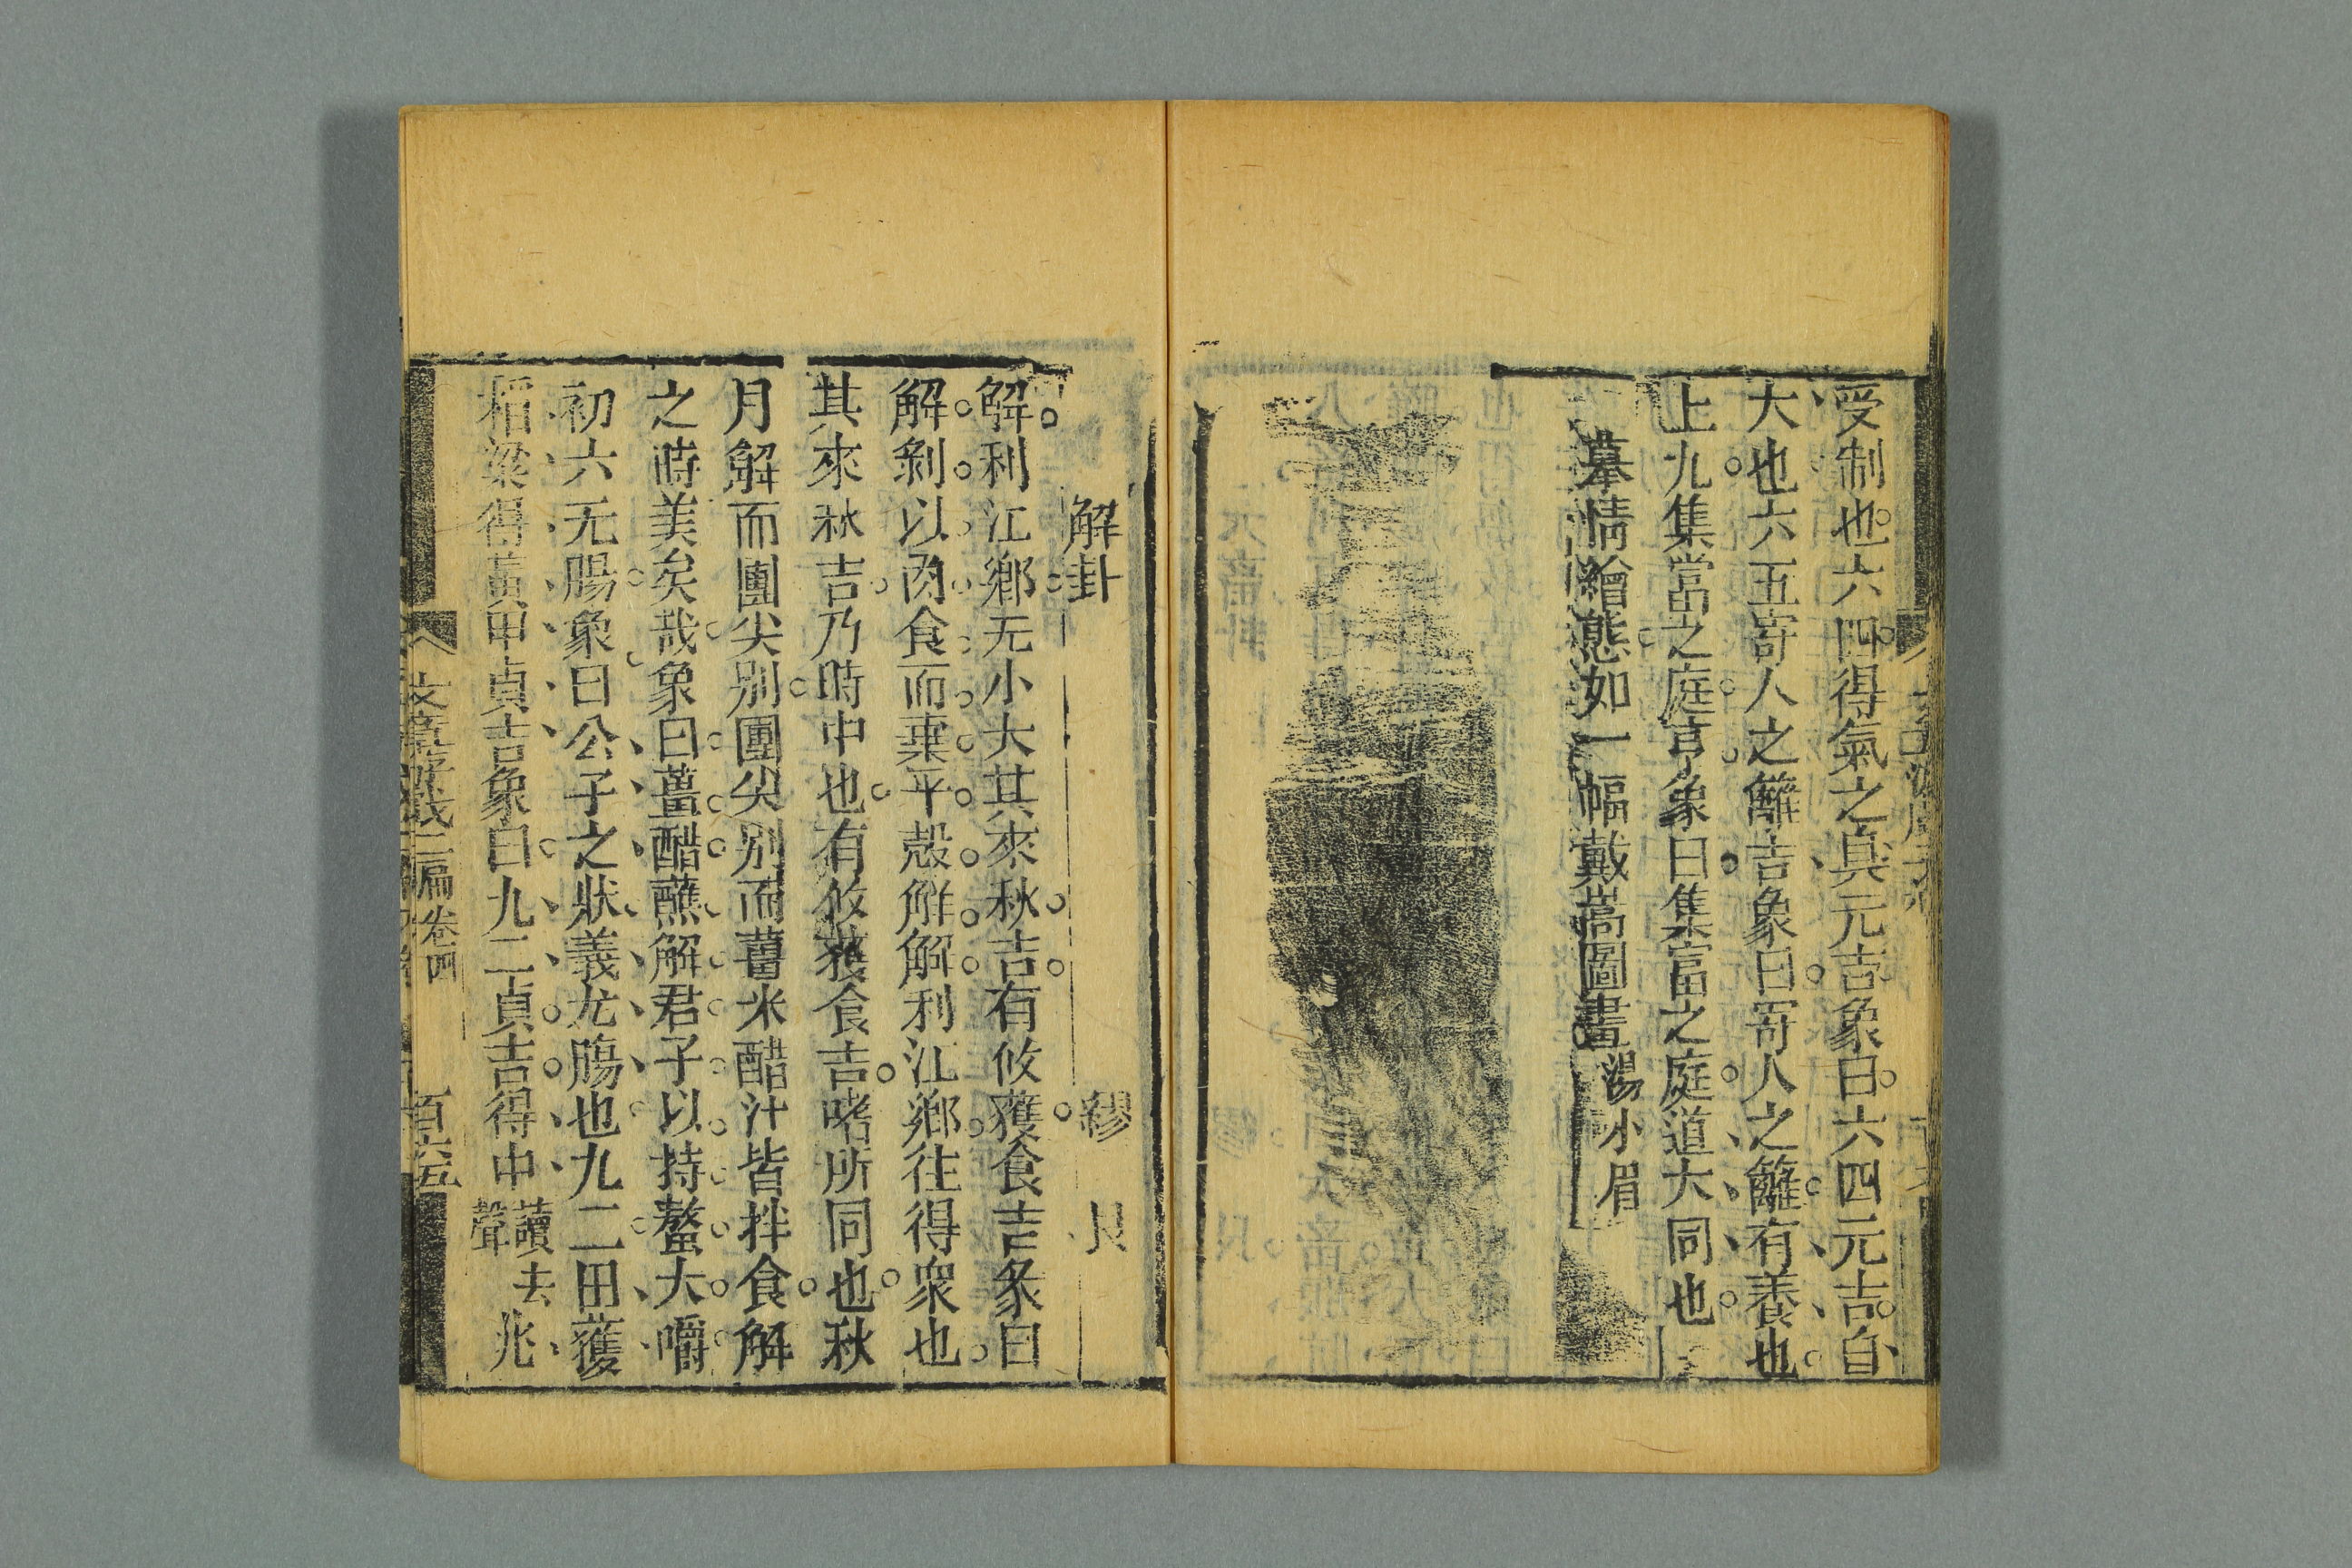 受制也六四得氣之真元吉象曰六四元吉自
大也六五寄人之籬吉象曰寄人之籬有養也
上九集當之庭亨象曰集富之庭道大同也
摹情繪態如一幅戴嵩圖畫 湯小眉
解卦 繆艮
解利江鄉无小大其來秋吉有攸獲食吉彖曰
解剝以肉食而乗平殼觧解利江鄉往得衆也
其來秋吉乃時中也有攸獲食吉嗜所同也秋
月解而團尖别團尖别而薑米醋汁皆拌食解
之時美矣哉象曰薑醋蘸解君子以持螯大嚼
初六无腸象曰公子之狀義尤膓也九二田獲
稻粱得黃甲貞吉象曰九二貞吉得中讀去聲兆
文章游戲二編卷四 百六五